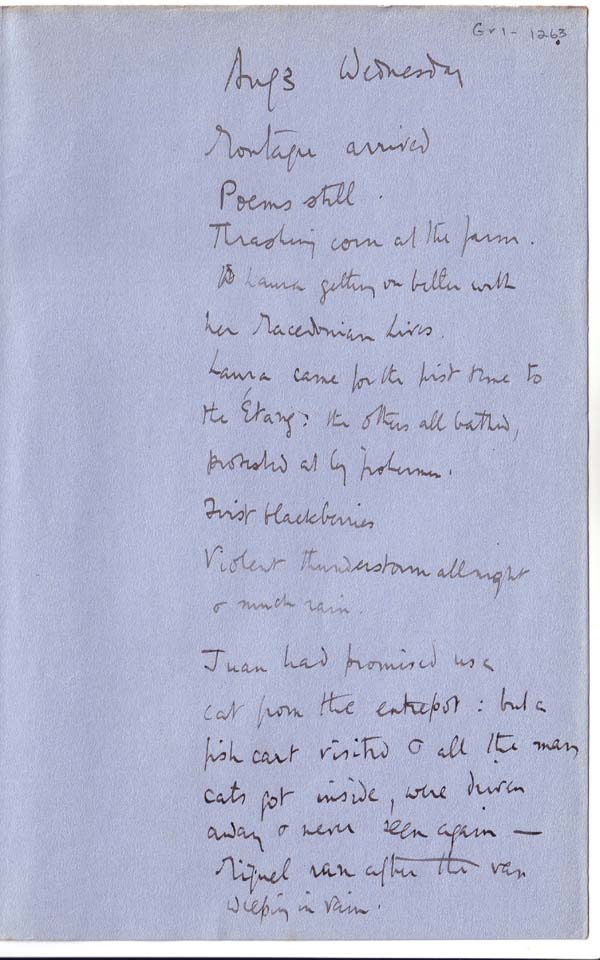 Gv1-1263
Aug 3 Wednesday
Montague arrived
Poems still.
Thrashing corn at the farm.
Laura getting on better with
her Macedonian Lives.
Laura came for the first time to
the Étang: the others all bathed,
protested at by fishermen.
First blackberries
Violent thunderstorm all night
& much rain.
Juan had promised us a
cat from the entrepot: but a
fish cart visited & all the many
cats got inside, were driven
away & never seen again —
Miquel ran after the van
weeping in vain.